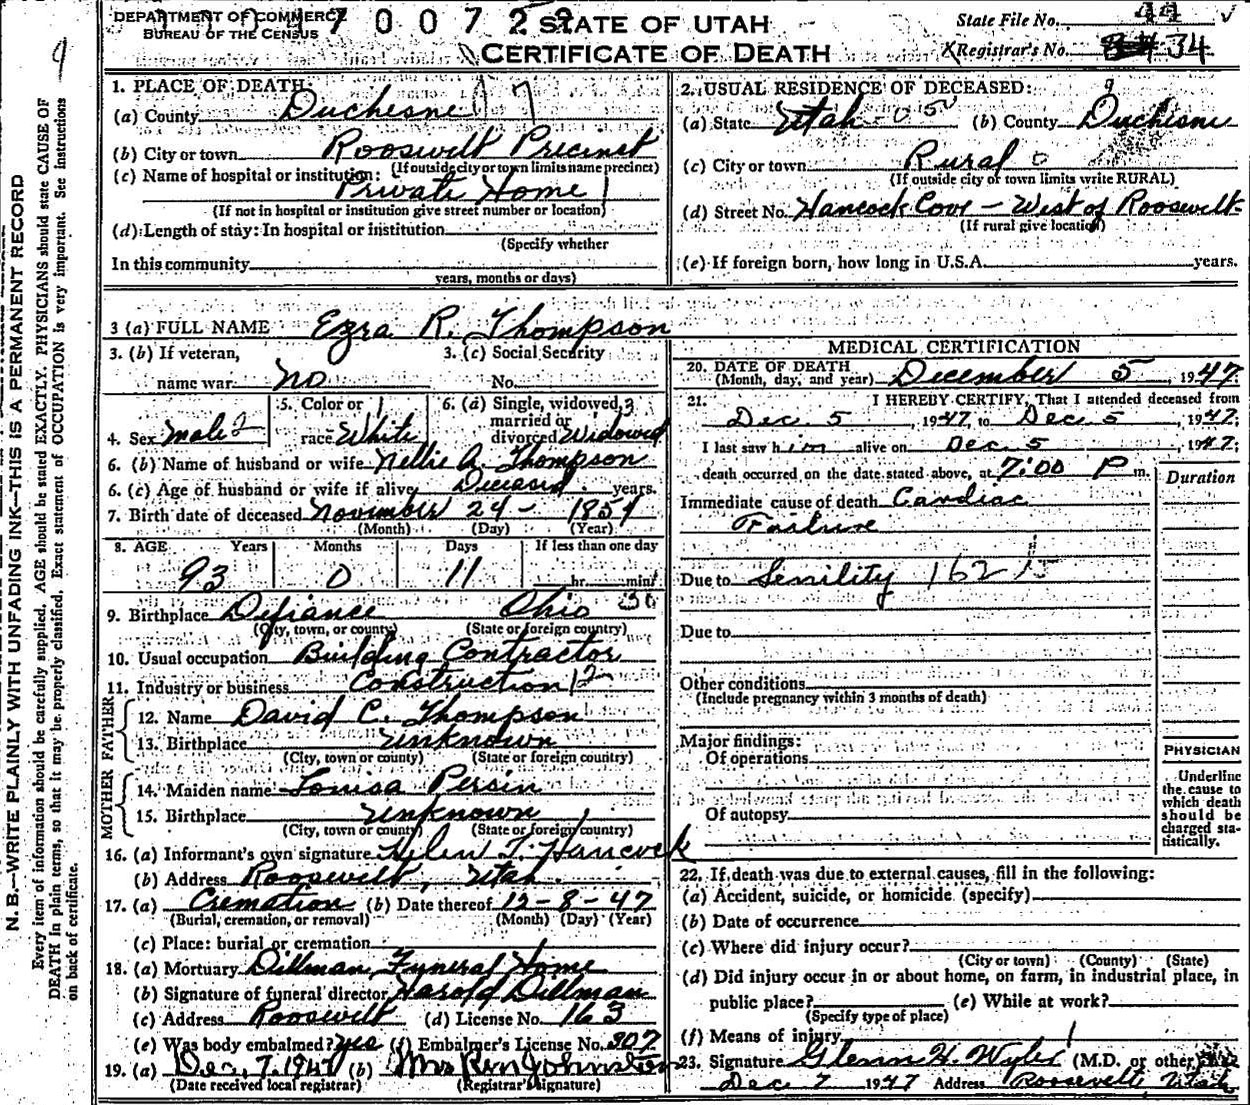 DEPARTMENT OF COMMERCE
BUREAU OF THE CENSUS
STATE OF UTAH
CERTIFICATE OF DEATH
State File No. 44
Registrar's No. 34
N. B.—WRITE PLAINLY WITH UNFADING INK—THIS IS A PERMANENT RECORD
Every item of information should be carefully supplied. AGE should be stated EXACTLY. PHYSICIANS should state CAUSE OF
DEATH in plain terms, so that it may be properly classified. Exact statement of OCCUPATION is very important. See instructions
on back of certificate.
1. PLACE OF DEATH:
(a) County Duchesne 17
(b) City or town Roosevelt Precinct
(If outside city or town limits name precinct)
(c) Name of hospital or institution:
Private Home
(If not in hospital or institution give street number or location)
(d) Length of stay: In hospital or institution
(Specify whether
In this community
years, months or days)
2. USUAL RESIDENCE OF DECEASED:
(a) State Utah (b) County Duchesne
(c) City or town Rural
(If outside city or town limits write RURAL)
(d) Street No. Hancock Cove - West of Roosevelt
(If rural give location)
(e) If foreign born, how long in U.S.A. years.
3 (a) FULL NAME Ezra R. Thompson
3. (b) If veteran,
name war no
3. (c) Social Security
No.
4. Sex male 2
5. Color or
race White
6. (a) Single, widowed, 3
married or
divorced Widowed
6. (b) Name of husband or wife Nellie A. Thompson
6. (c) Age of husband or wife if alive Deceased years.
7. Birth date of deceased November 24 - 1854
(Month) (Day) (Year)
8. AGE Years Months Days If less than one day
93 0 11 hr. min.
9. Birthplace Defiance Ohio 36
(City, town, or county) (State or foreign country)
10. Usual occupation Building Contractor
11. Industry or business Construction 12
FATHER
12. Name David C. Thompson
13. Birthplace unknown
(City, town or county) (State or foreign country)
MOTHER
14. Maiden name Louisa Persin
15. Birthplace Unknown
(City, town or county) (State or foreign country)
16. (a) Informant's own signature Helen T. Hancock
(b) Address Roosevelt, Utah
17. (a) Cremation (b) Date thereof 12-8-47
(Burial, cremation, or removal) (Month) (Day) (Year)
(c) Place: burial or cremation
18. (a) Mortuary Dillman Funeral Home
(b) Signature of funeral director Harold Dillman
(c) Address Roosevelt (d) License No. 163
(e) Was body embalmed? yes (f) Embalmer's License No. 307
19. (a) Dec. 7. 1947 (b) Mrs Ren Johnston
(Date received local registrar) (Registrar's signature)
MEDICAL CERTIFICATION
20. DATE OF DEATH
(Month, day, and year) December 5, 1947;
21. I HEREBY CERTIFY, That I attended deceased from
Dec. 5, 1947, to Dec. 5, 1947;
I last saw him alive on Dec. 5, 1947;
death occurred on the date stated above, at 7:00 P m.
Immediate cause of death Cardiac
Failure
Duration
Due to Senility 162
Due to
Other conditions
(Include pregnancy within 3 months of death)
Major findings:
Of operations
Of autopsy
PHYSICIAN
Underline
the cause to
which death
should be
charged sta-
tistically.
22. If death was due to external causes, fill in the following:
(a) Accident, suicide, or homicide (specify)
(b) Date of occurrence
(c) Where did injury occur?
(City or town) (County) (State)
(d) Did injury occur in or about home, on farm, in industrial place, in
public place? (e) While at work?
(Specify type of place)
(f) Means of injury
23. Signature Glenn H. Wyler (M.D. or other)
Dec 7 1947 Address Roosevelt Utah